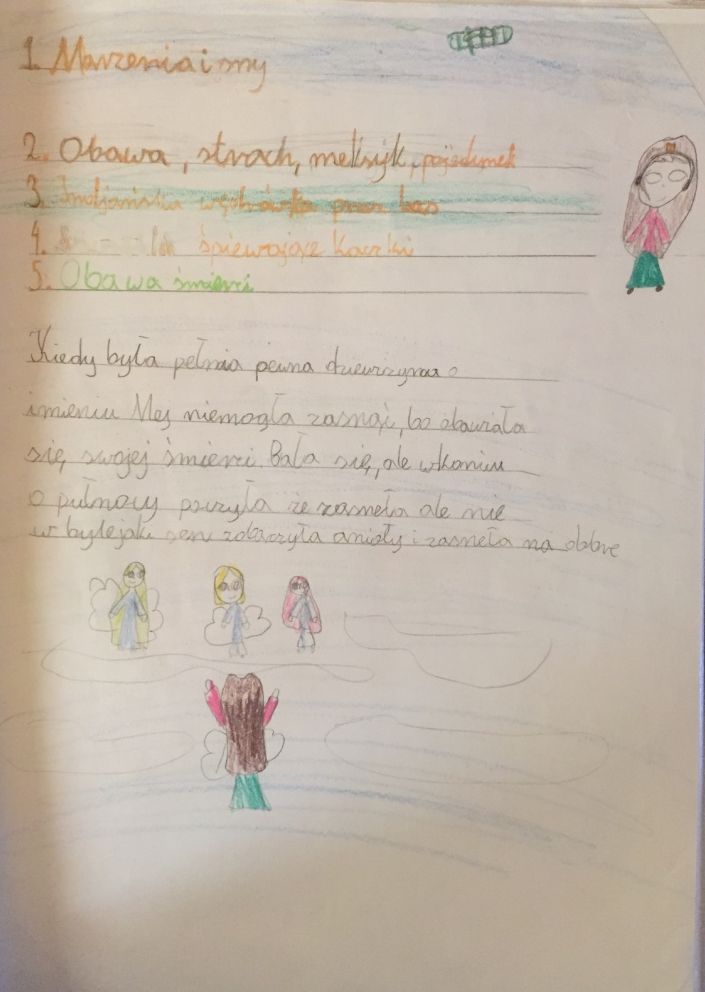 1. Marzenia i my
2. Obawa, strach, meksyk, pojedynek
3. wędrówka przez las
4. śpiewające kaczki
5. Obawa śmierci
Kiedy była pełnia pewna dziewczynna o
imieniu Mej niemogła zasnąć, bo obawiała
się, swojej śmierci. Bała się, ale wkońcu
o pułnocy poczyła ze zasneła ale nie
w bylejaki sen zobaczyła anioły i zasneła na dobre